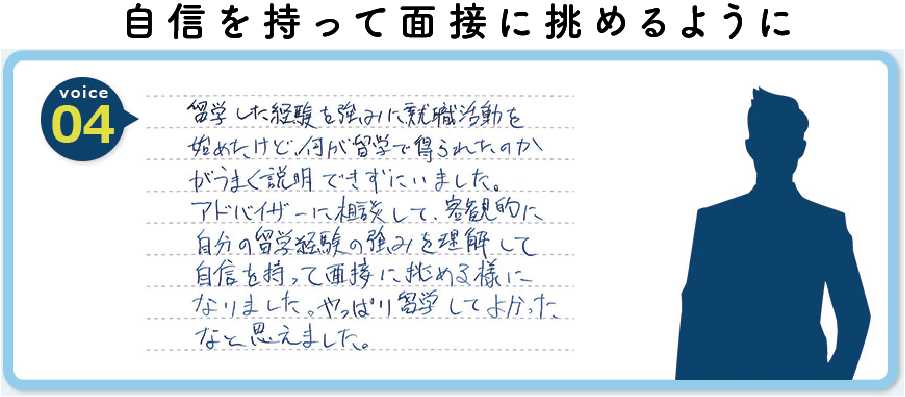 自信を持って面接に挑めるように
voice
04
留学した経験を強みに就職活動を
始めたけど、何が留学で得られたのか
がうまく説明できずにいました。
アドバイザーに相談して、客観的に
自分の留学経験の強みを理解して
自信を持って面接に挑める様に
なりました。やっぱり留学してよかった
なと思えました。